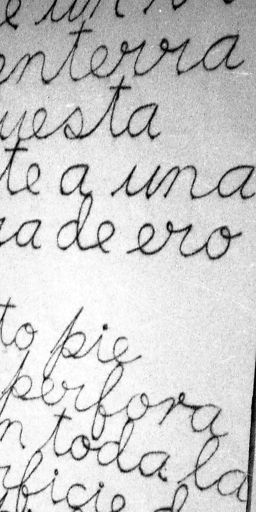 e un
enterra
uesta
te a una
ra de ero
to pie
perfora
n toda la
rficie d